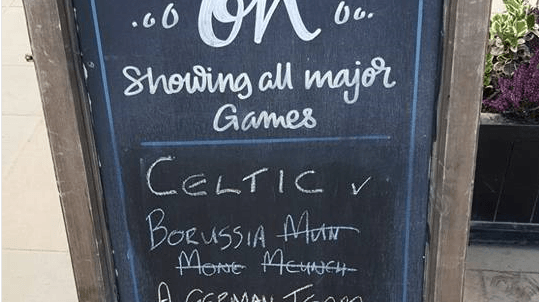 on
Showing all major
Games
CELTIC ✓
BORUSSIA MUN
MONC MEUNCH
A GERMAN TEAM